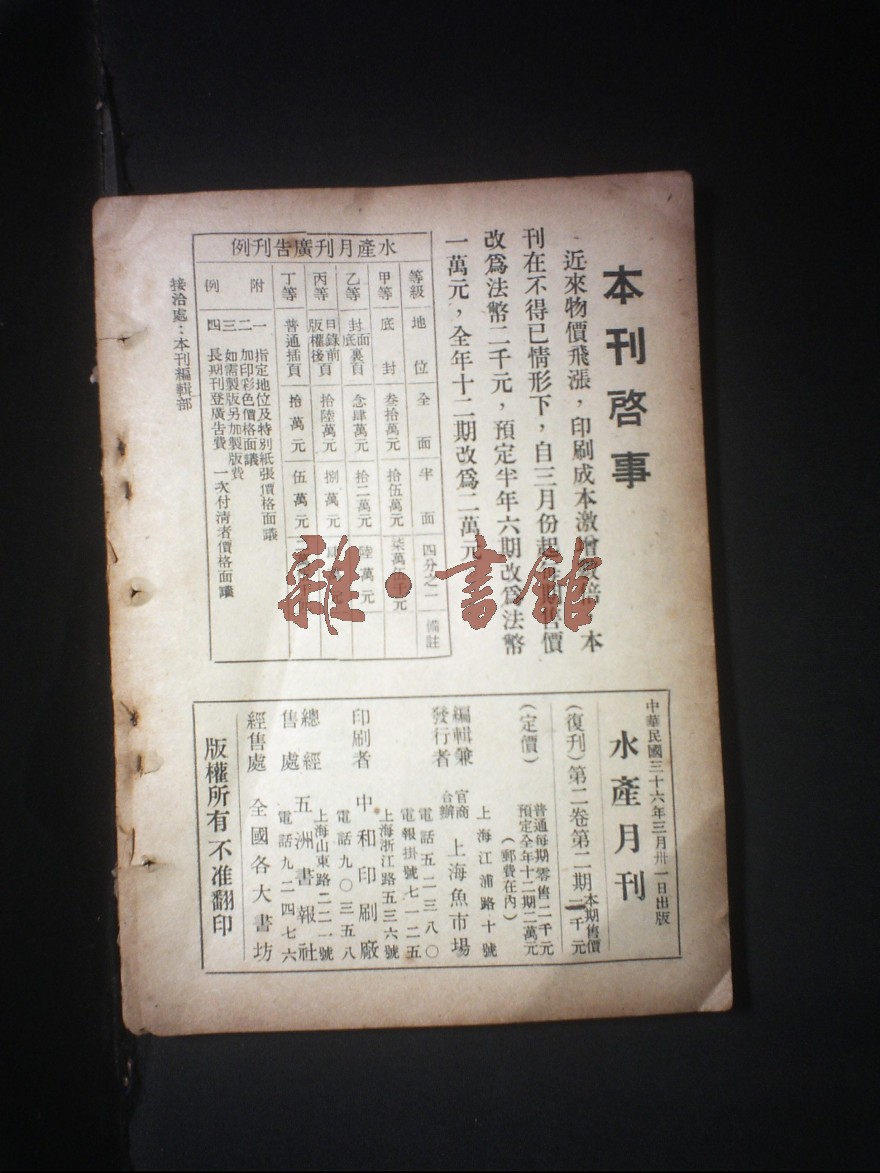 本刊啓事
近來物價飛漲，印刷成本激增數倍，本
刊在不得已情形下，自三月份起
售價
改爲法幣二千元，預定半年六期改爲法幣
一萬元，全年十二期改爲二萬元
水產月刊廣告刊例
等級 地位 全面 半面 四分之一 備註
甲等 底封 叁拾萬元 拾伍萬元 柒萬伍千元
乙等 封面底裏頁 念肆萬元 拾二萬元 陸萬元
丙等 目錄前版權後頁 拾陸萬元 捌萬元 肆萬元
丁等 普通插頁 拾萬元 伍萬元
附例
一 指定地位及特別紙張價格面議
二 加印彩色價格面議
三 如需製版另加製版費
四 長期刊登廣告費 一次付清者價格面議
接洽處：本刊編輯部
雜·書館
中華民國三十六年三月卅一日出版
水產月刊
(復刊)第二卷第二期 本期售價二千元
(定價) 普通每期零售二千元
預定全年十二期二萬元
(郵費在內)
編輯兼發行者 官商合辦 上海魚市場
上海江浦路十號
電話五二三八〇
電報掛號七一二五
印刷者 中和印刷廠
上海浙江路五三六號
電話九〇三五八
總經售處 五洲書報社
上海山東路二二一號
電話九二四七六
經售處 全國各大書坊
版權所有 不准翻印